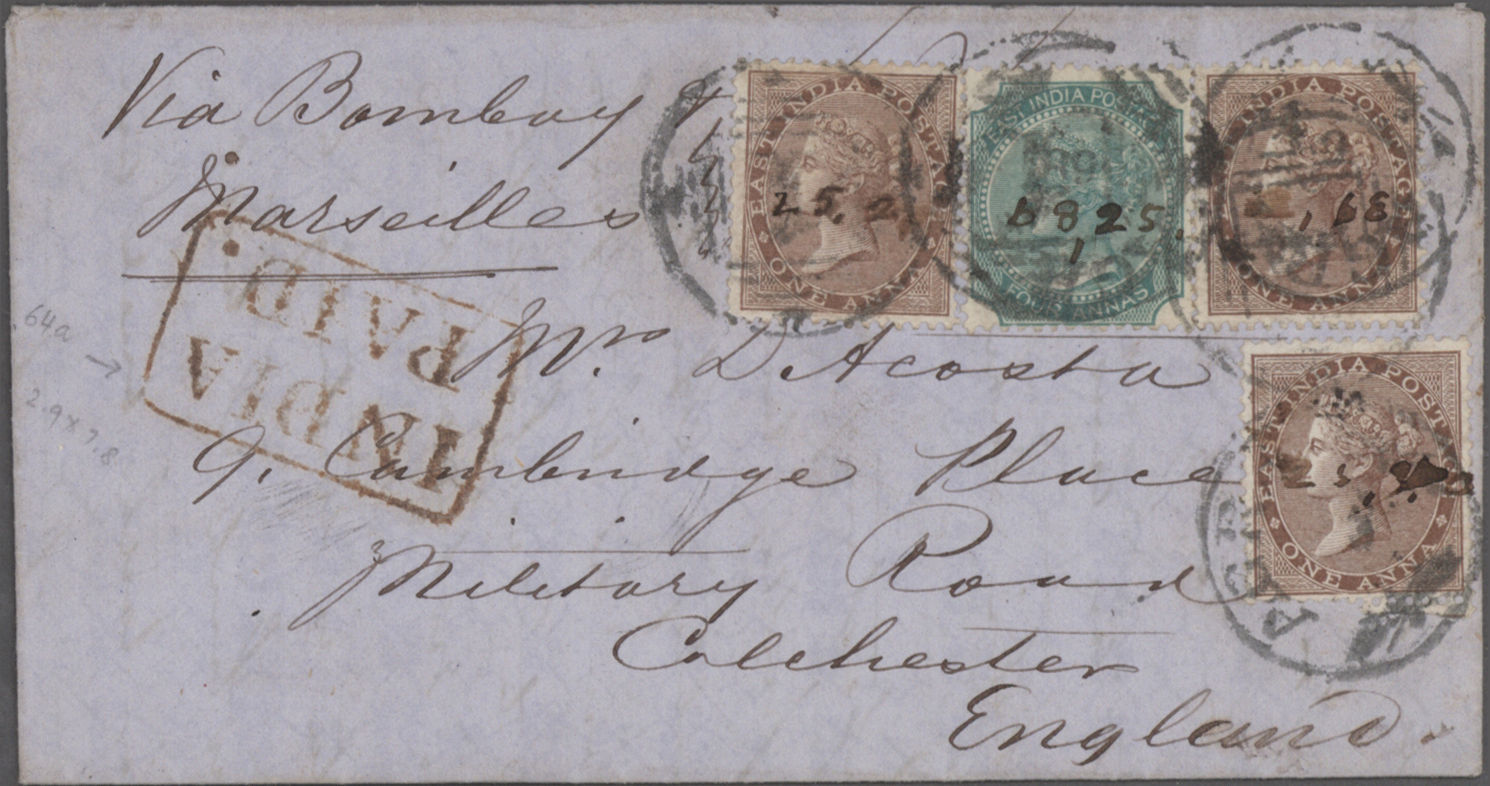 Via Bombay &
Marseilles
EAST INDIA POSTAGE
ONE ANNA
25. 2.
EAST INDIA POSTAGE
FOUR ANNAS
EAST INDIA POSTAGE
ONE ANNA
, 68
INDIA
PAID.
64a
2.9 x 7.8
Mrs DAcosta
9. Cambridge Place
EAST INDIA POSTAGE
ONE ANNA
Military Road
Colchester
England.